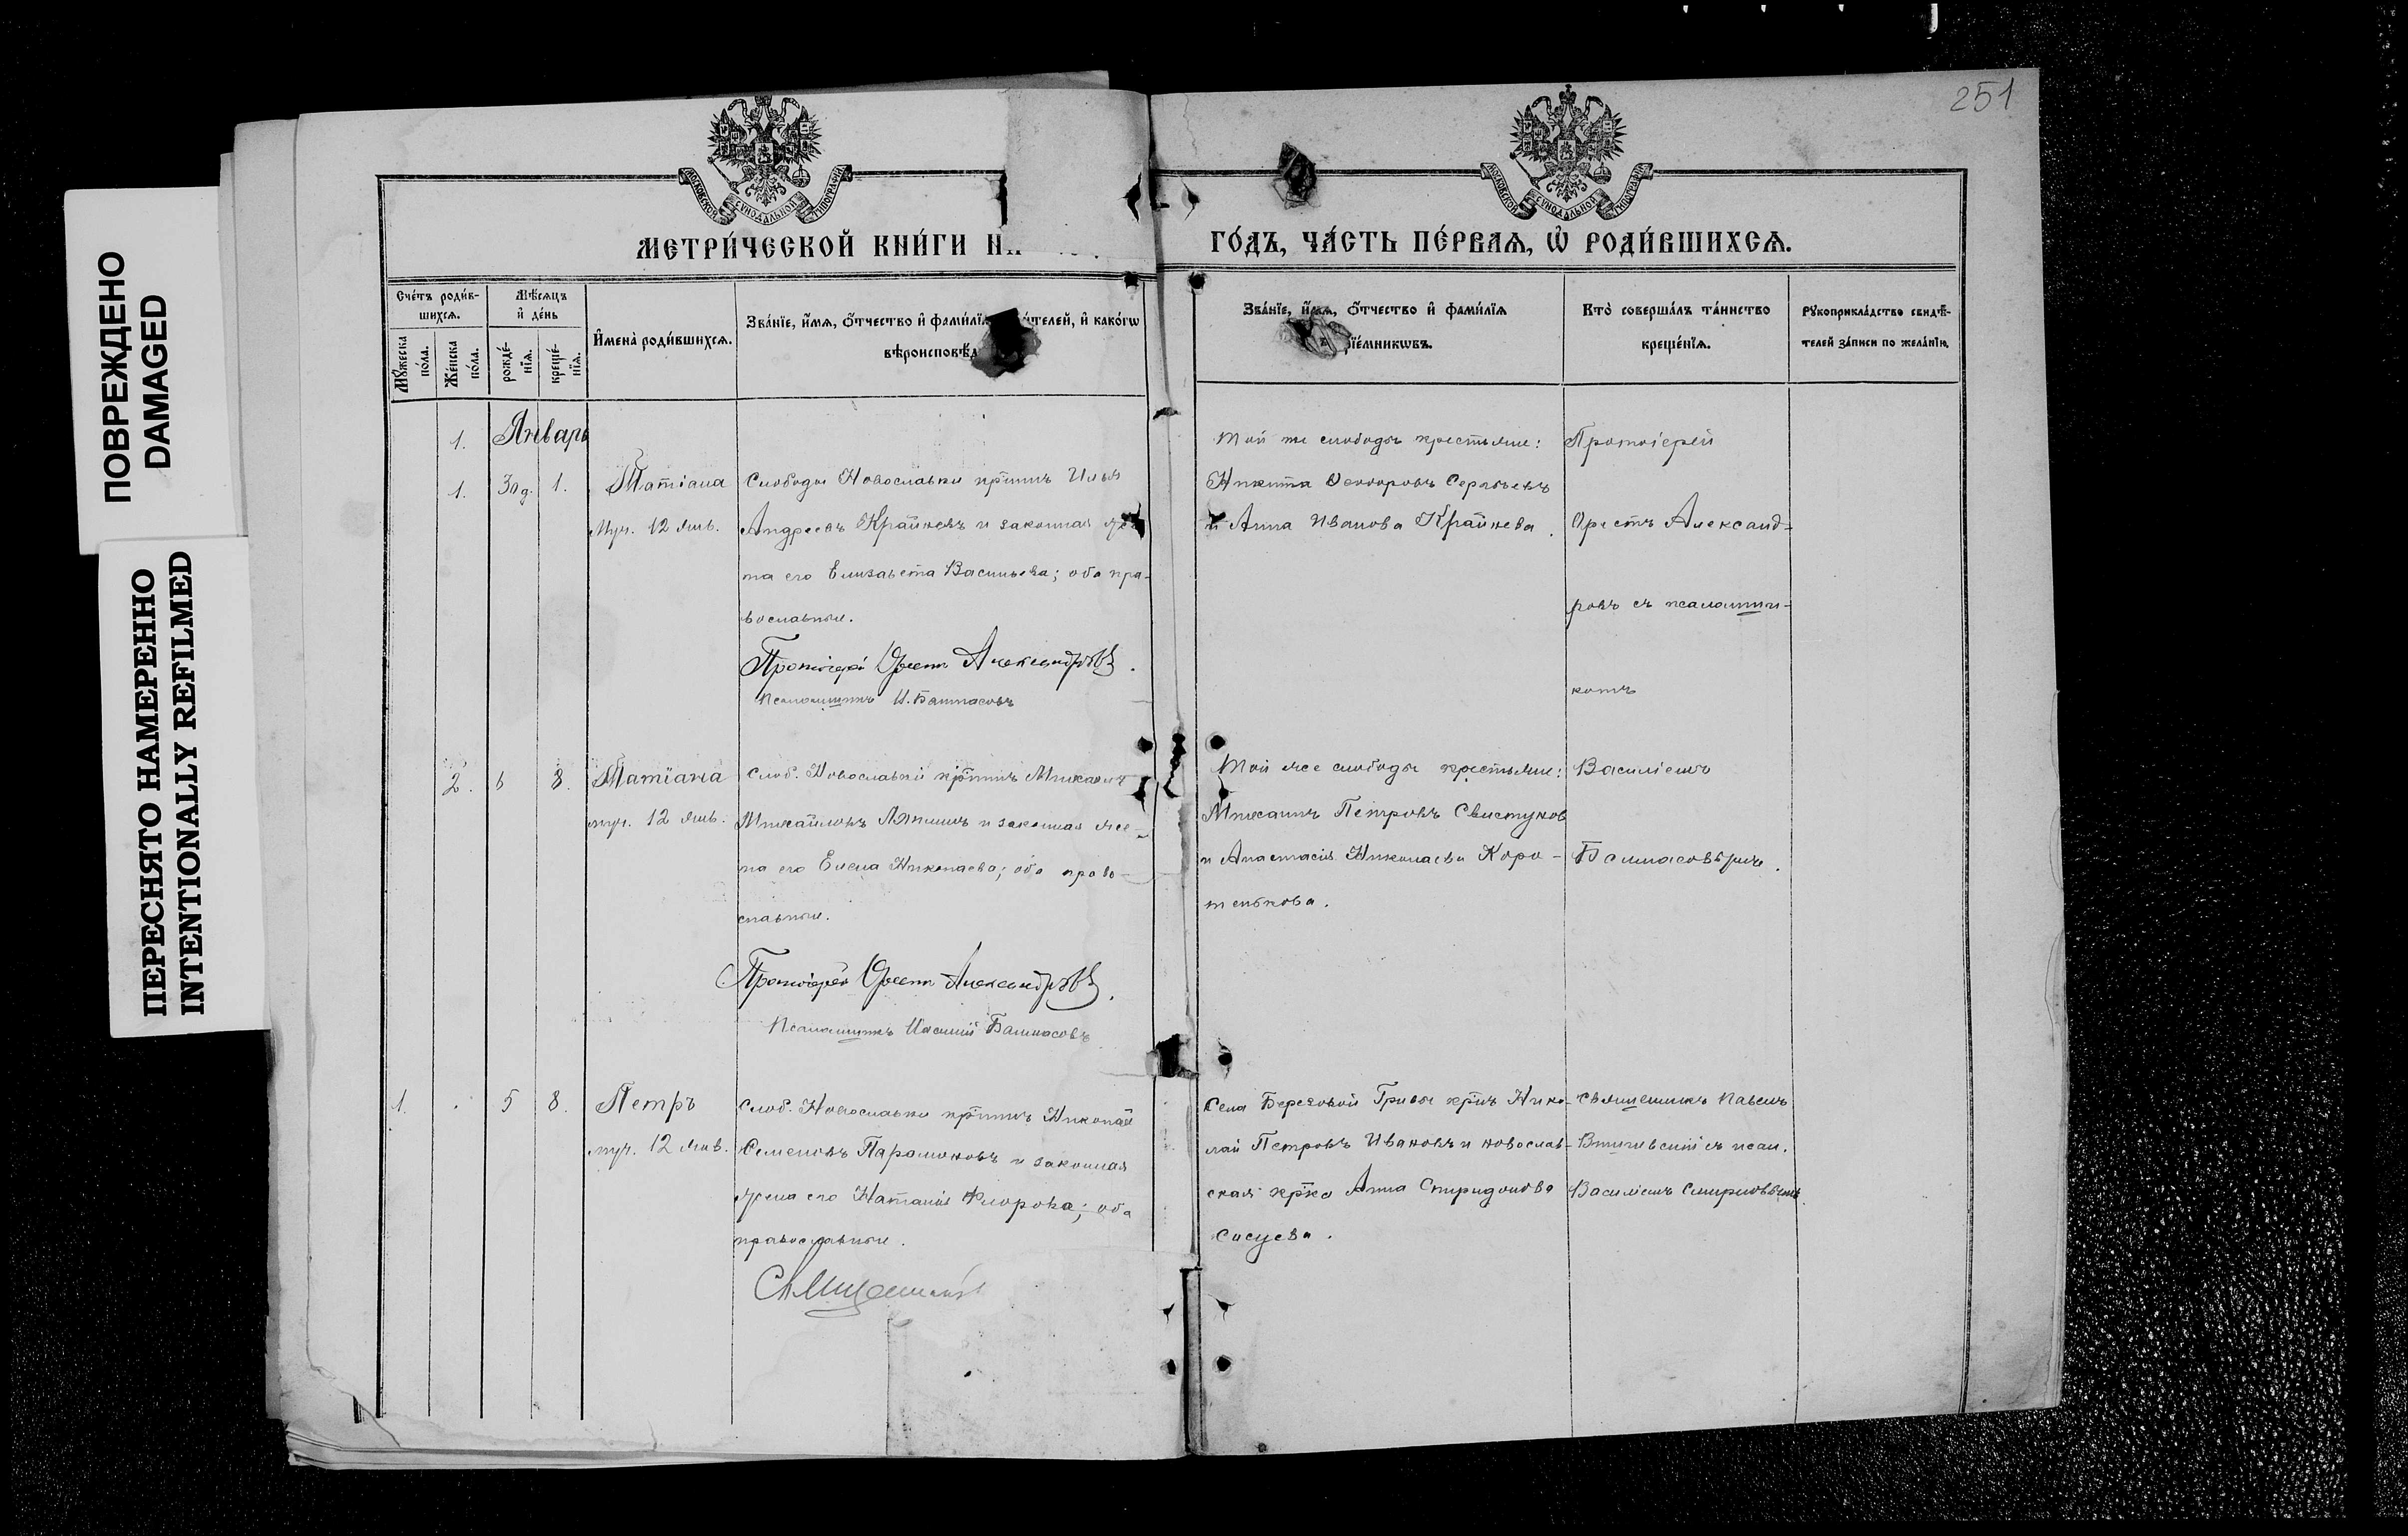 251
ПОВРЕЖДЕНО
DAMAGED
ПЕРЕСНЯТО НАМЕРЕННО
INTENTIONALLY REFILMED
МОСКОВСКОЙ СѴНОДАЛЬНОЙ ТИПОГРАФІИ
МОСКОВСКОЙ СѴНОДАЛЬНОЙ ТИПОГРАФІИ
МЕТРИ́ЧЕСКОЙ КНИ́ГИ НА
ГО́ДЪ, ЧА́СТЬ ПЕ́РВАЯ, Ѡ҆ РОДИ́ВШИХСЯ.
Сче́тъ роди́в-
шихся.
Мѣ́сяцъ
и҆ де́нь
Мꙋ́жеска
по́ла.
Же́нска
по́ла.
рожде́-
нїя.
креще́-
нїя.
И҆мена̀ роди́вшихся.
Зва́нїе, и҆́мя, ѻ҆́тчество и҆ фами́лїя телей, и҆ како́гѡ
вѣроисповѣ́д
Зва́нїе, и҆́мя, ѻ҆́тчество и҆ фами́лїя
рїе́мникѡвъ.
Кто̀ соверша́лъ та́инство
креще́нїя.
Рꙋкоприкла́дство свидѣ́-
телей за́писи по жела́нїю.
1. Январь
1. 30 д. 1. Татіана
муч. 12 янв.
Слободы Новославки кр̃нинъ Илья
Андреевъ Крайневъ и законная же
на его Елизавета Васильева; оба пра-
вославные.
Протоіерей Орестъ Александровъ.
Псаломщикъ И. Башмасовъ
Той же слободы крестьяне:
Никита Ѳеодоровъ Сергѣевъ
и Анна Иванова Крайнева.
Протоіерей
Орестъ Александ-
ровъ съ псаломщи-
комъ
2. 6 8. Татіана
муч. 12 янв.
Слоб. Новославки кр̃нинъ Михаилъ
Михайловъ Ляпинъ и законная же-
на его Елена Николаева; оба право-
славные.
Протоіерей Орестъ Александровъ.
Псаломщикъ Башмасовъ
Той же слободы крестьяне:
Михаилъ Петровъ Свистунов
и Анастасія Николаева Коро-
тенкова.
Василіемъ
Башмасовымъ.
1. 5 8. Петръ
муч. 12 янв.
Слоб. Новославки кр̃нинъ Николай
Семеновъ Парамоновъ и законная
жена его Наталія Флорова; оба
православные.
Священникъ
Села Березовой Гривы кр̃нъ Нико-
лай Петровъ Ивановъ и новослав-
ская кр̃ка Анна Спиридонова
Сисуева.
Священникъ Павелъ
съ псал.
Василіемъ Смирновымъ.